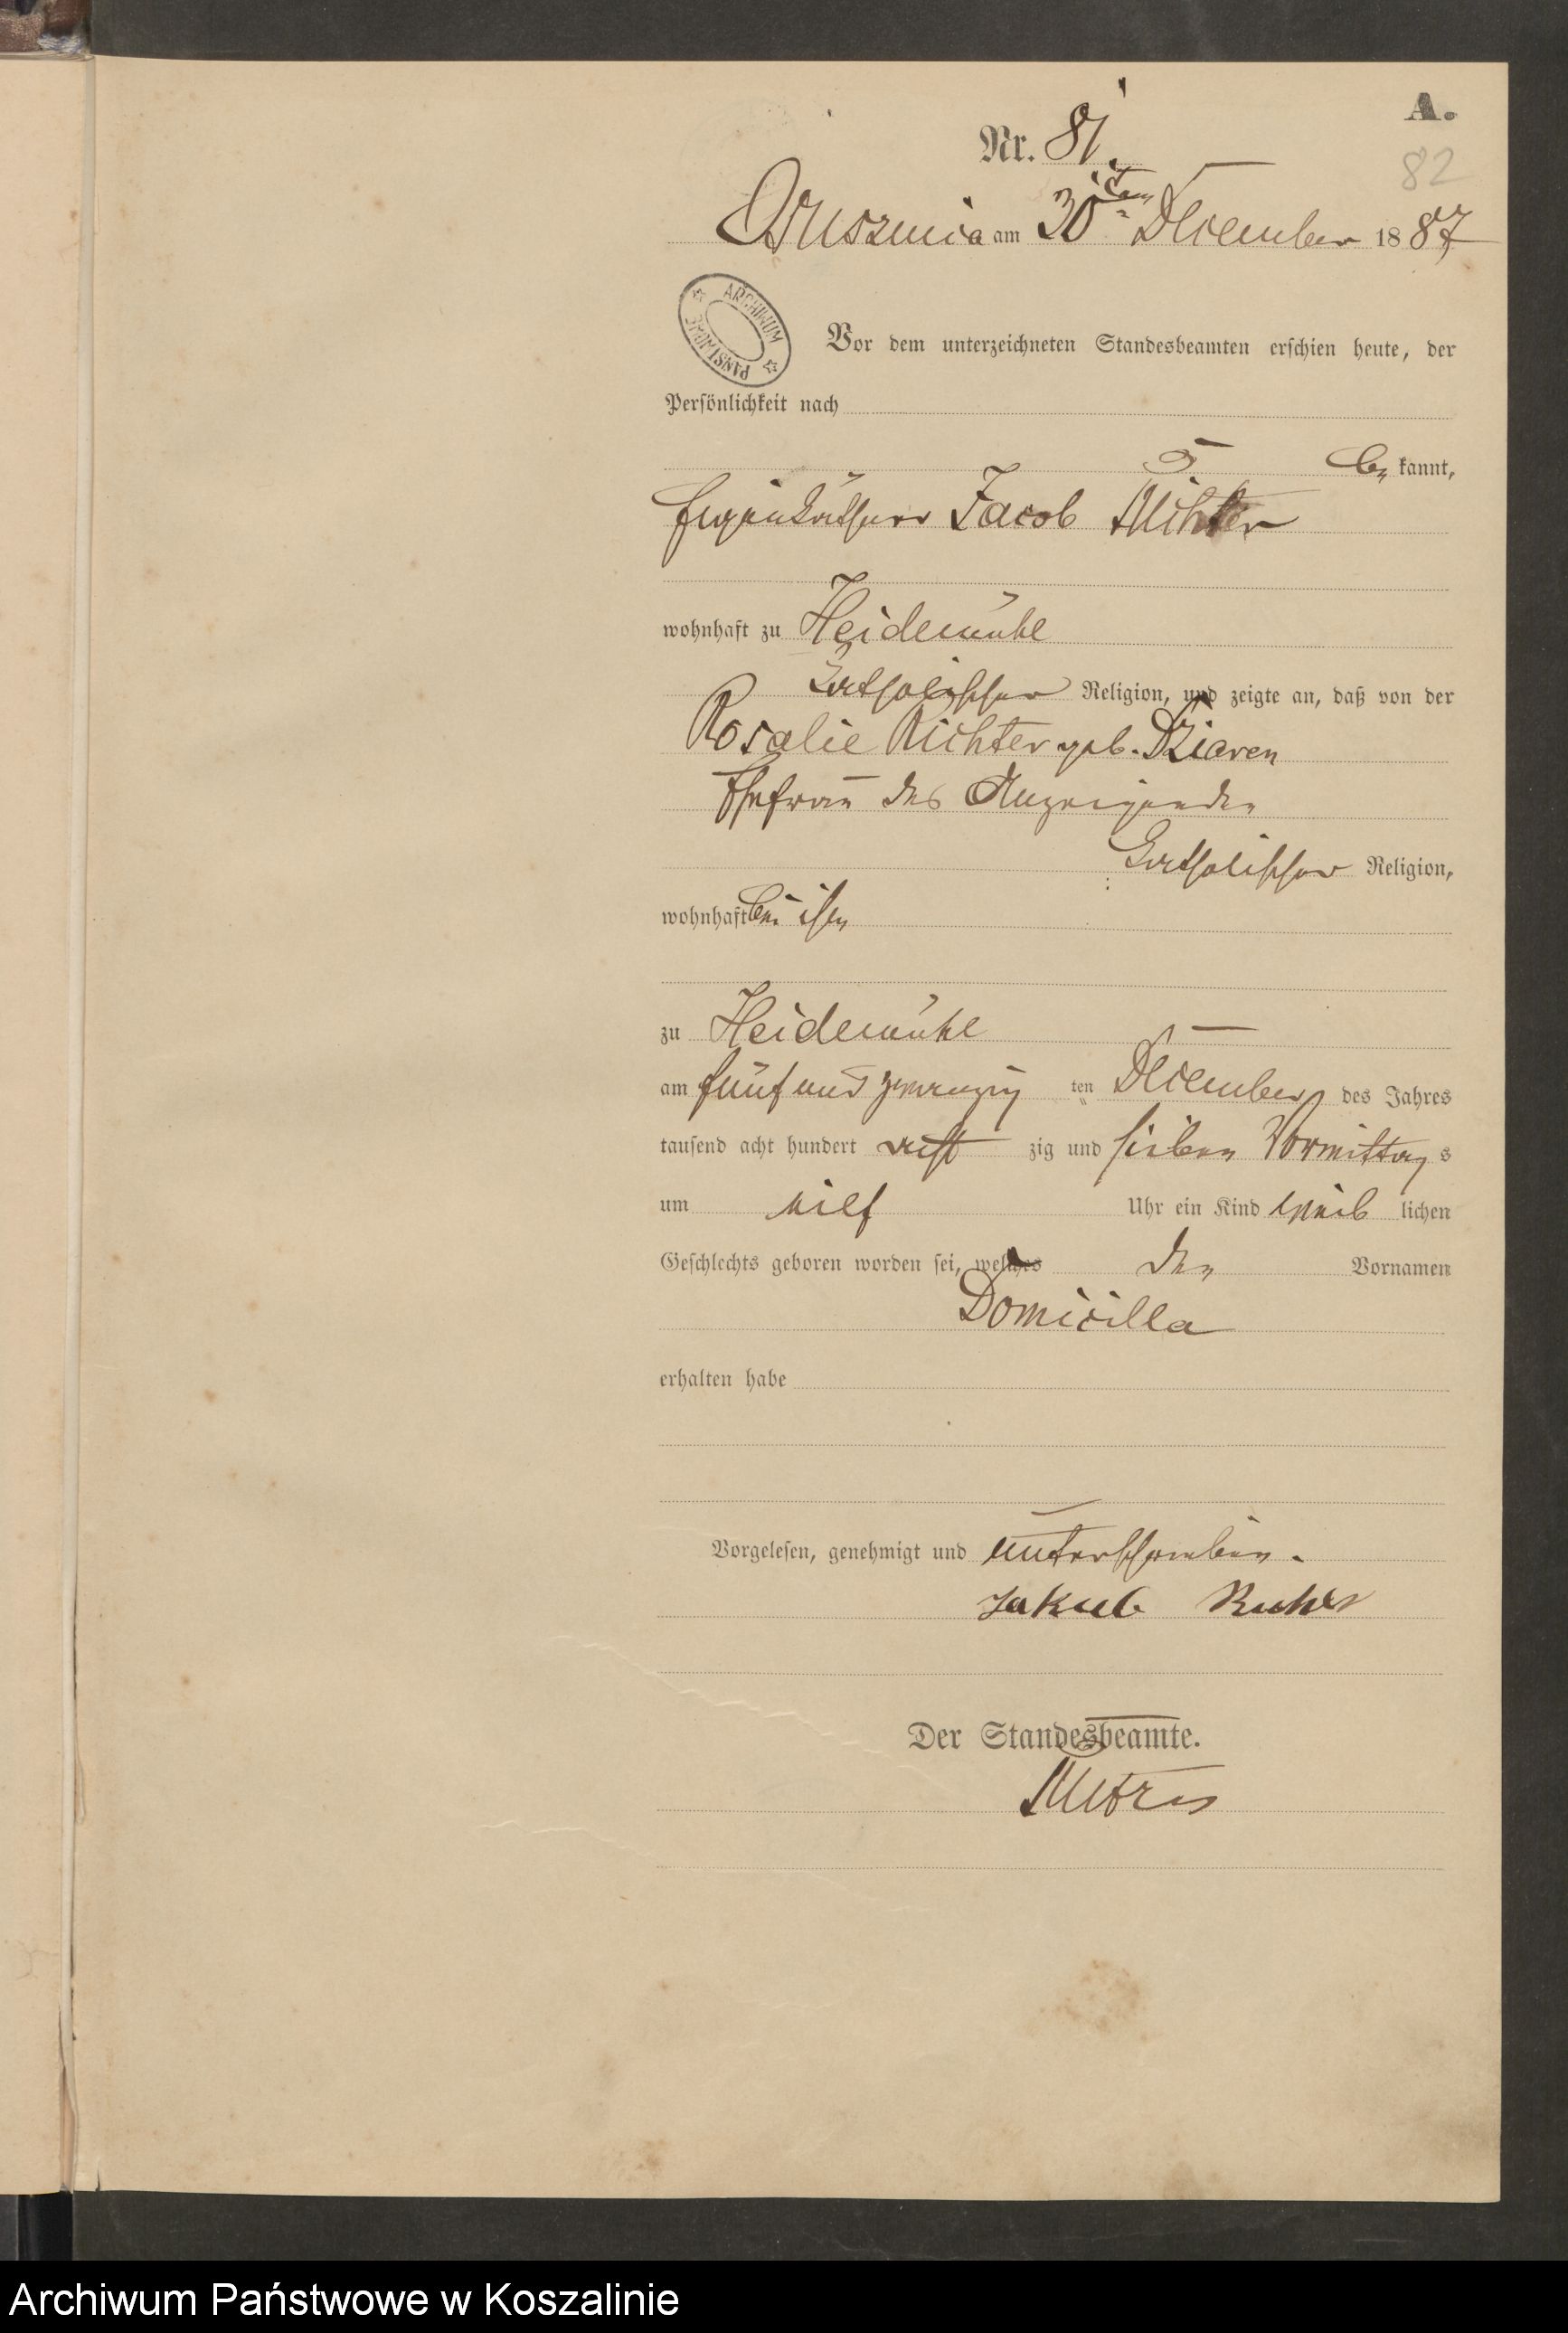 A.
Nr. 81.
82
Borszymia am 30ten December 1887
ARCHIWUM PAŃSTWOWE
Vor dem unterzeichneten Standesbeamten erschien heute, der
Persönlichkeit nach
be kannt,
Eigenkäthner Jacob Richter
wohnhaft zu Heidemühl
katholischer Religion, und zeigte an, daß von der
Rosalie Richter geb. Dziaren
Ehefrau des Anzeigenden
katholischer Religion,
wohnhaft bei ihm
zu Heidemühl
am fünf und zwanzig ten December des Jahres
tausend acht hundert acht zig und sieben Vormittag s
um eilf Uhr ein Kind weib lichen
Geschlechts geboren worden sei, welches den Vornamen
Domicilla
erhalten habe
Vorgelesen, genehmigt und unterschrieben.
Jakub Richter
Der Standesbeamte.